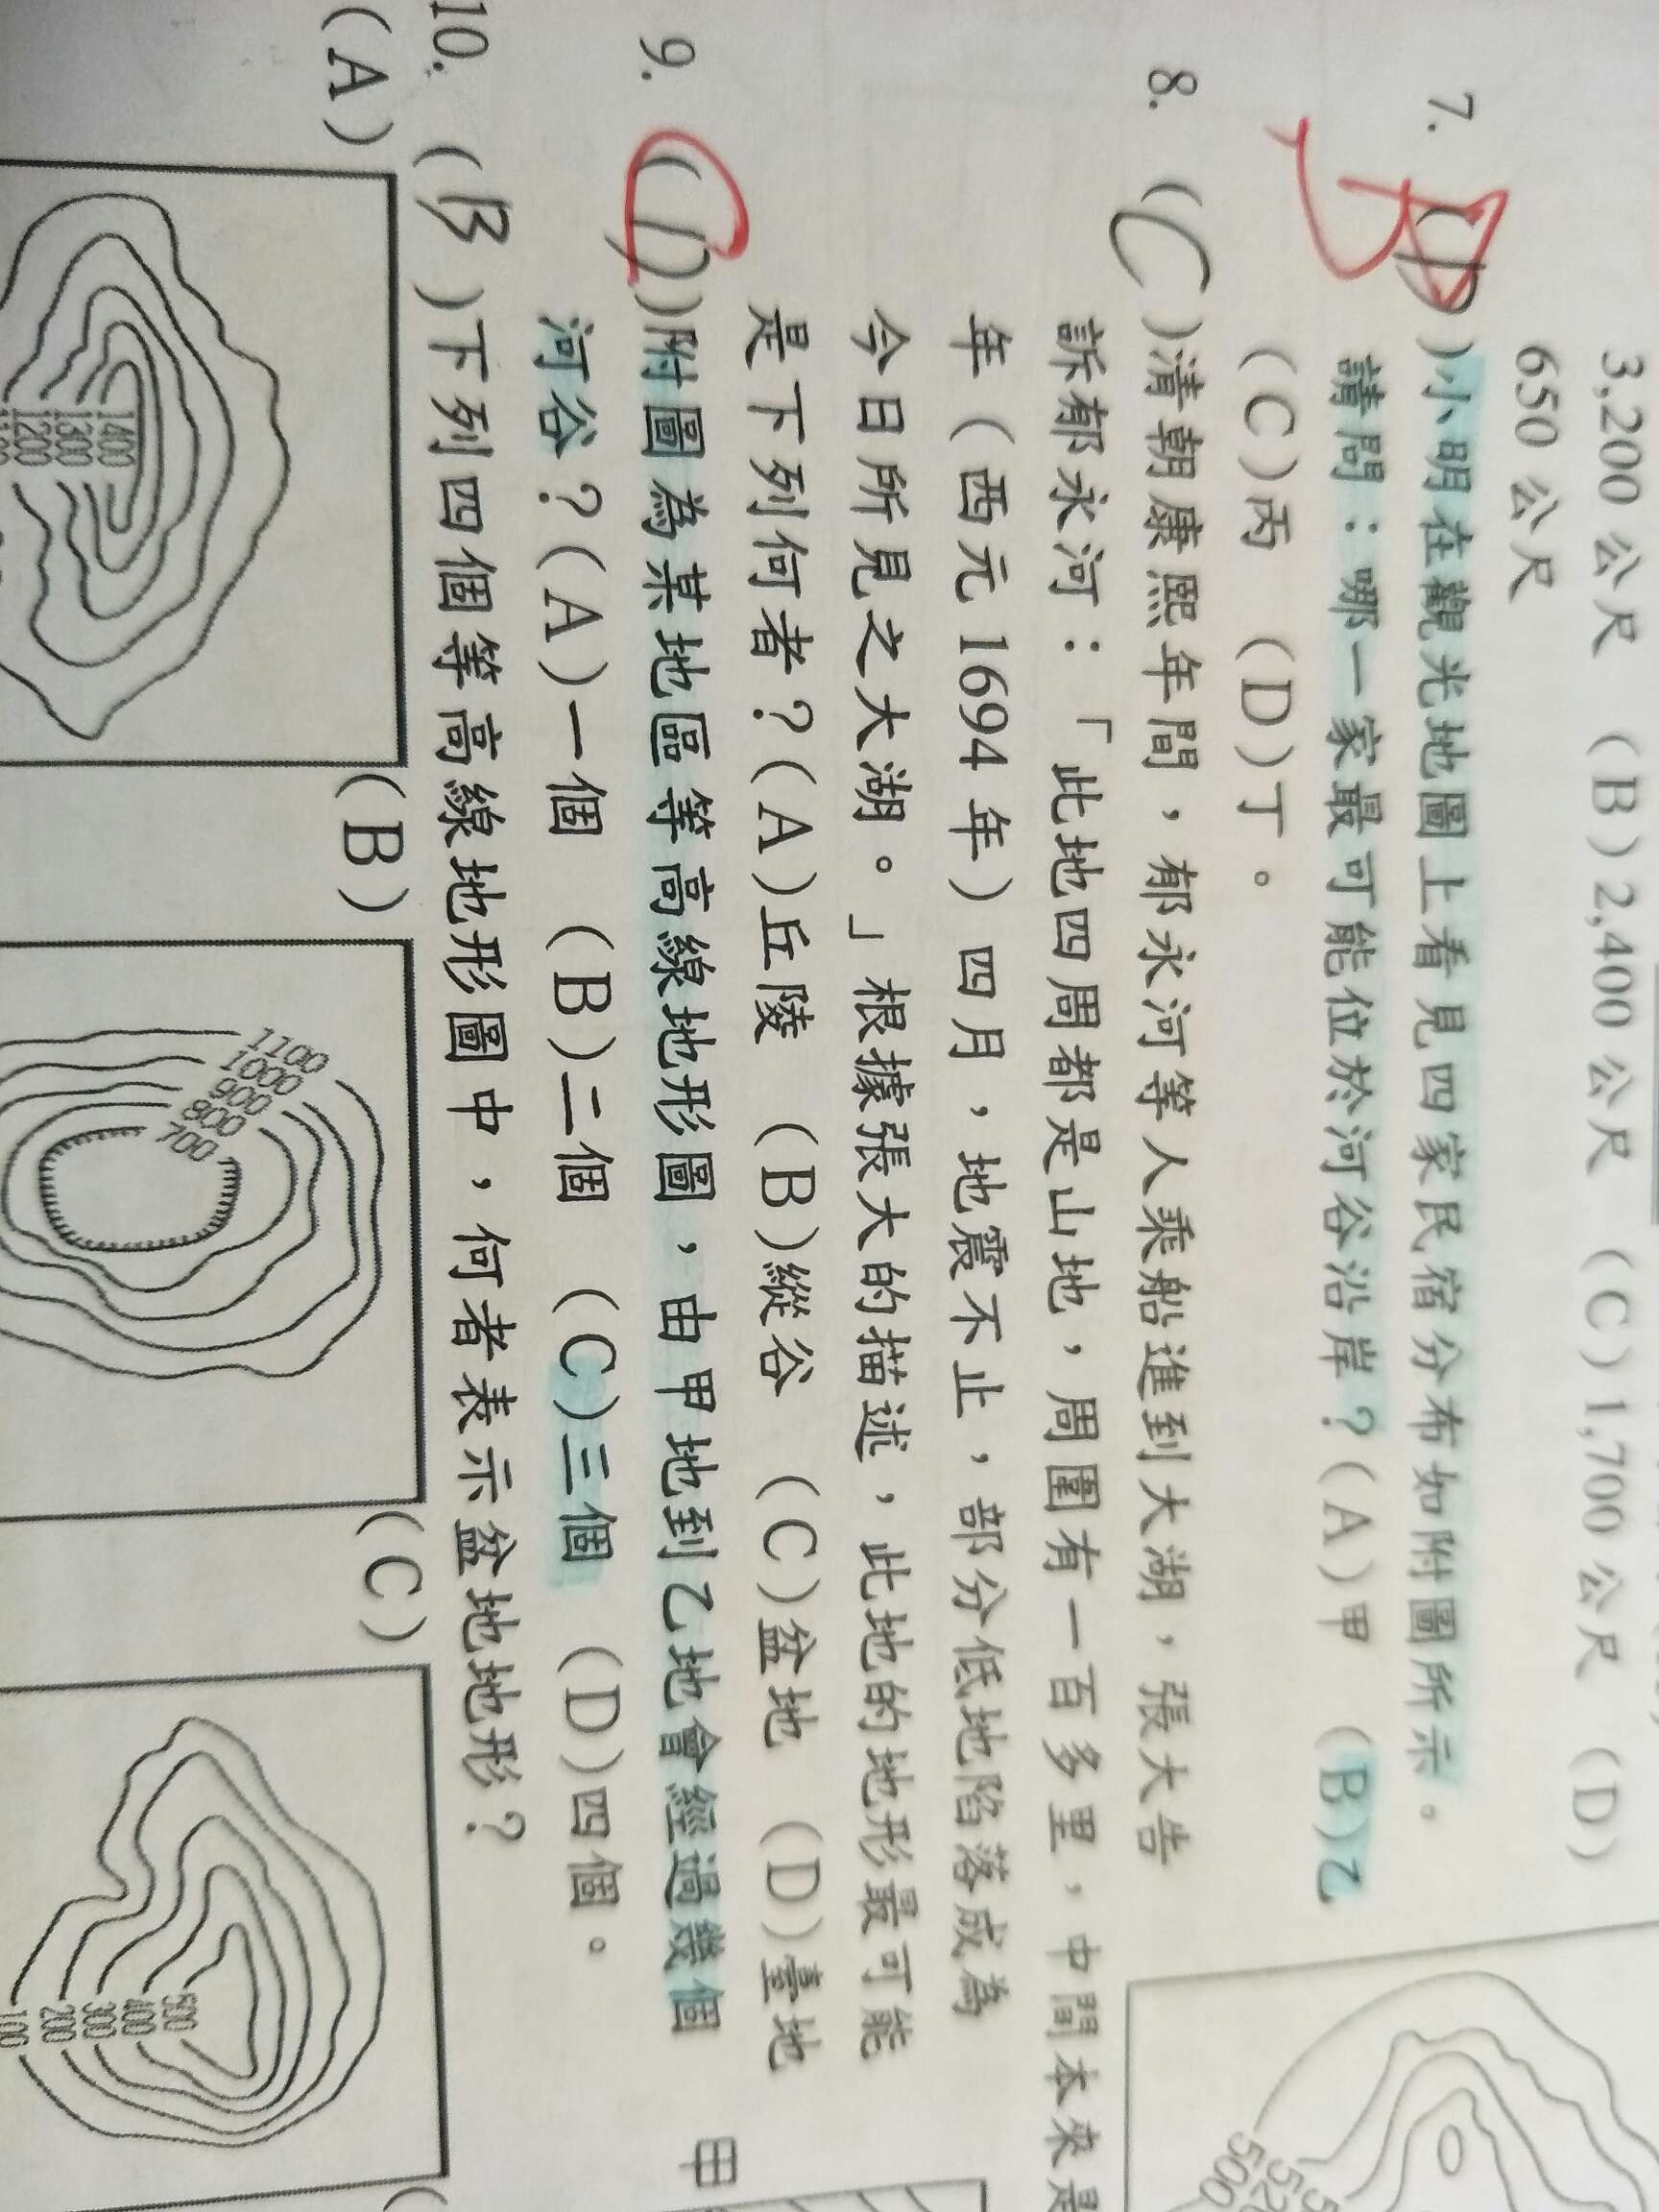 3,200 公尺 (B)2,400 公尺 (C)1,700 公尺 (D)
650 公尺
7. ( )小明在觀光地圖上看見四家民宿分布如附圖所示。
請問：哪一家最可能位於河谷沿岸？(A)甲 (B)乙
(C)丙 (D)丁。
B
8. (C)清朝康熙年間，郁永河等人乘船進到大湖，張大告
訴郁永河：「此地四周都是山地，周圍有一百多里，中間本來是
年（西元 1694 年）四月，地震不止，部分低地陷落成為
今日所見之大湖。」根據張大的描述，此地的地形最可能
是下列何者？(A)丘陵 (B)縱谷 (C)盆地 (D)臺地
9. (D)附圖為某地區等高線地形圖，由甲地到乙地會經過幾個
C
河谷？(A)一個 (B)二個 (C)三個 (D)四個。
甲
10. (B)下列四個等高線地形圖中，何者表示盆地地形？
(A)
1400
1300
1200
(B)
1100
1000
900
800
700
(C)
500
400
300
200
100
500